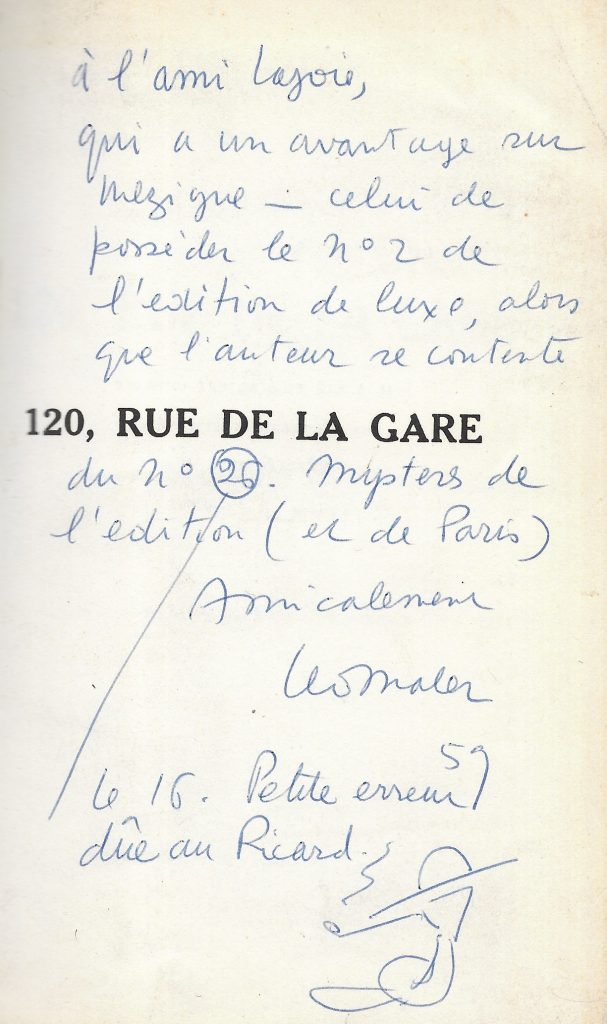 à l'ami Lajoie,
qui a un avantage sur
mezigue — celui de
posséder le nº 2 de
l'édition de luxe, alors
que l'auteur se contente
120, RUE DE LA GARE
du nº 26. Mystères de
l'édition (et de Paris)
Amicalement
Léo Malet
59
le 16. Petite erreur
dûe au Ricard.